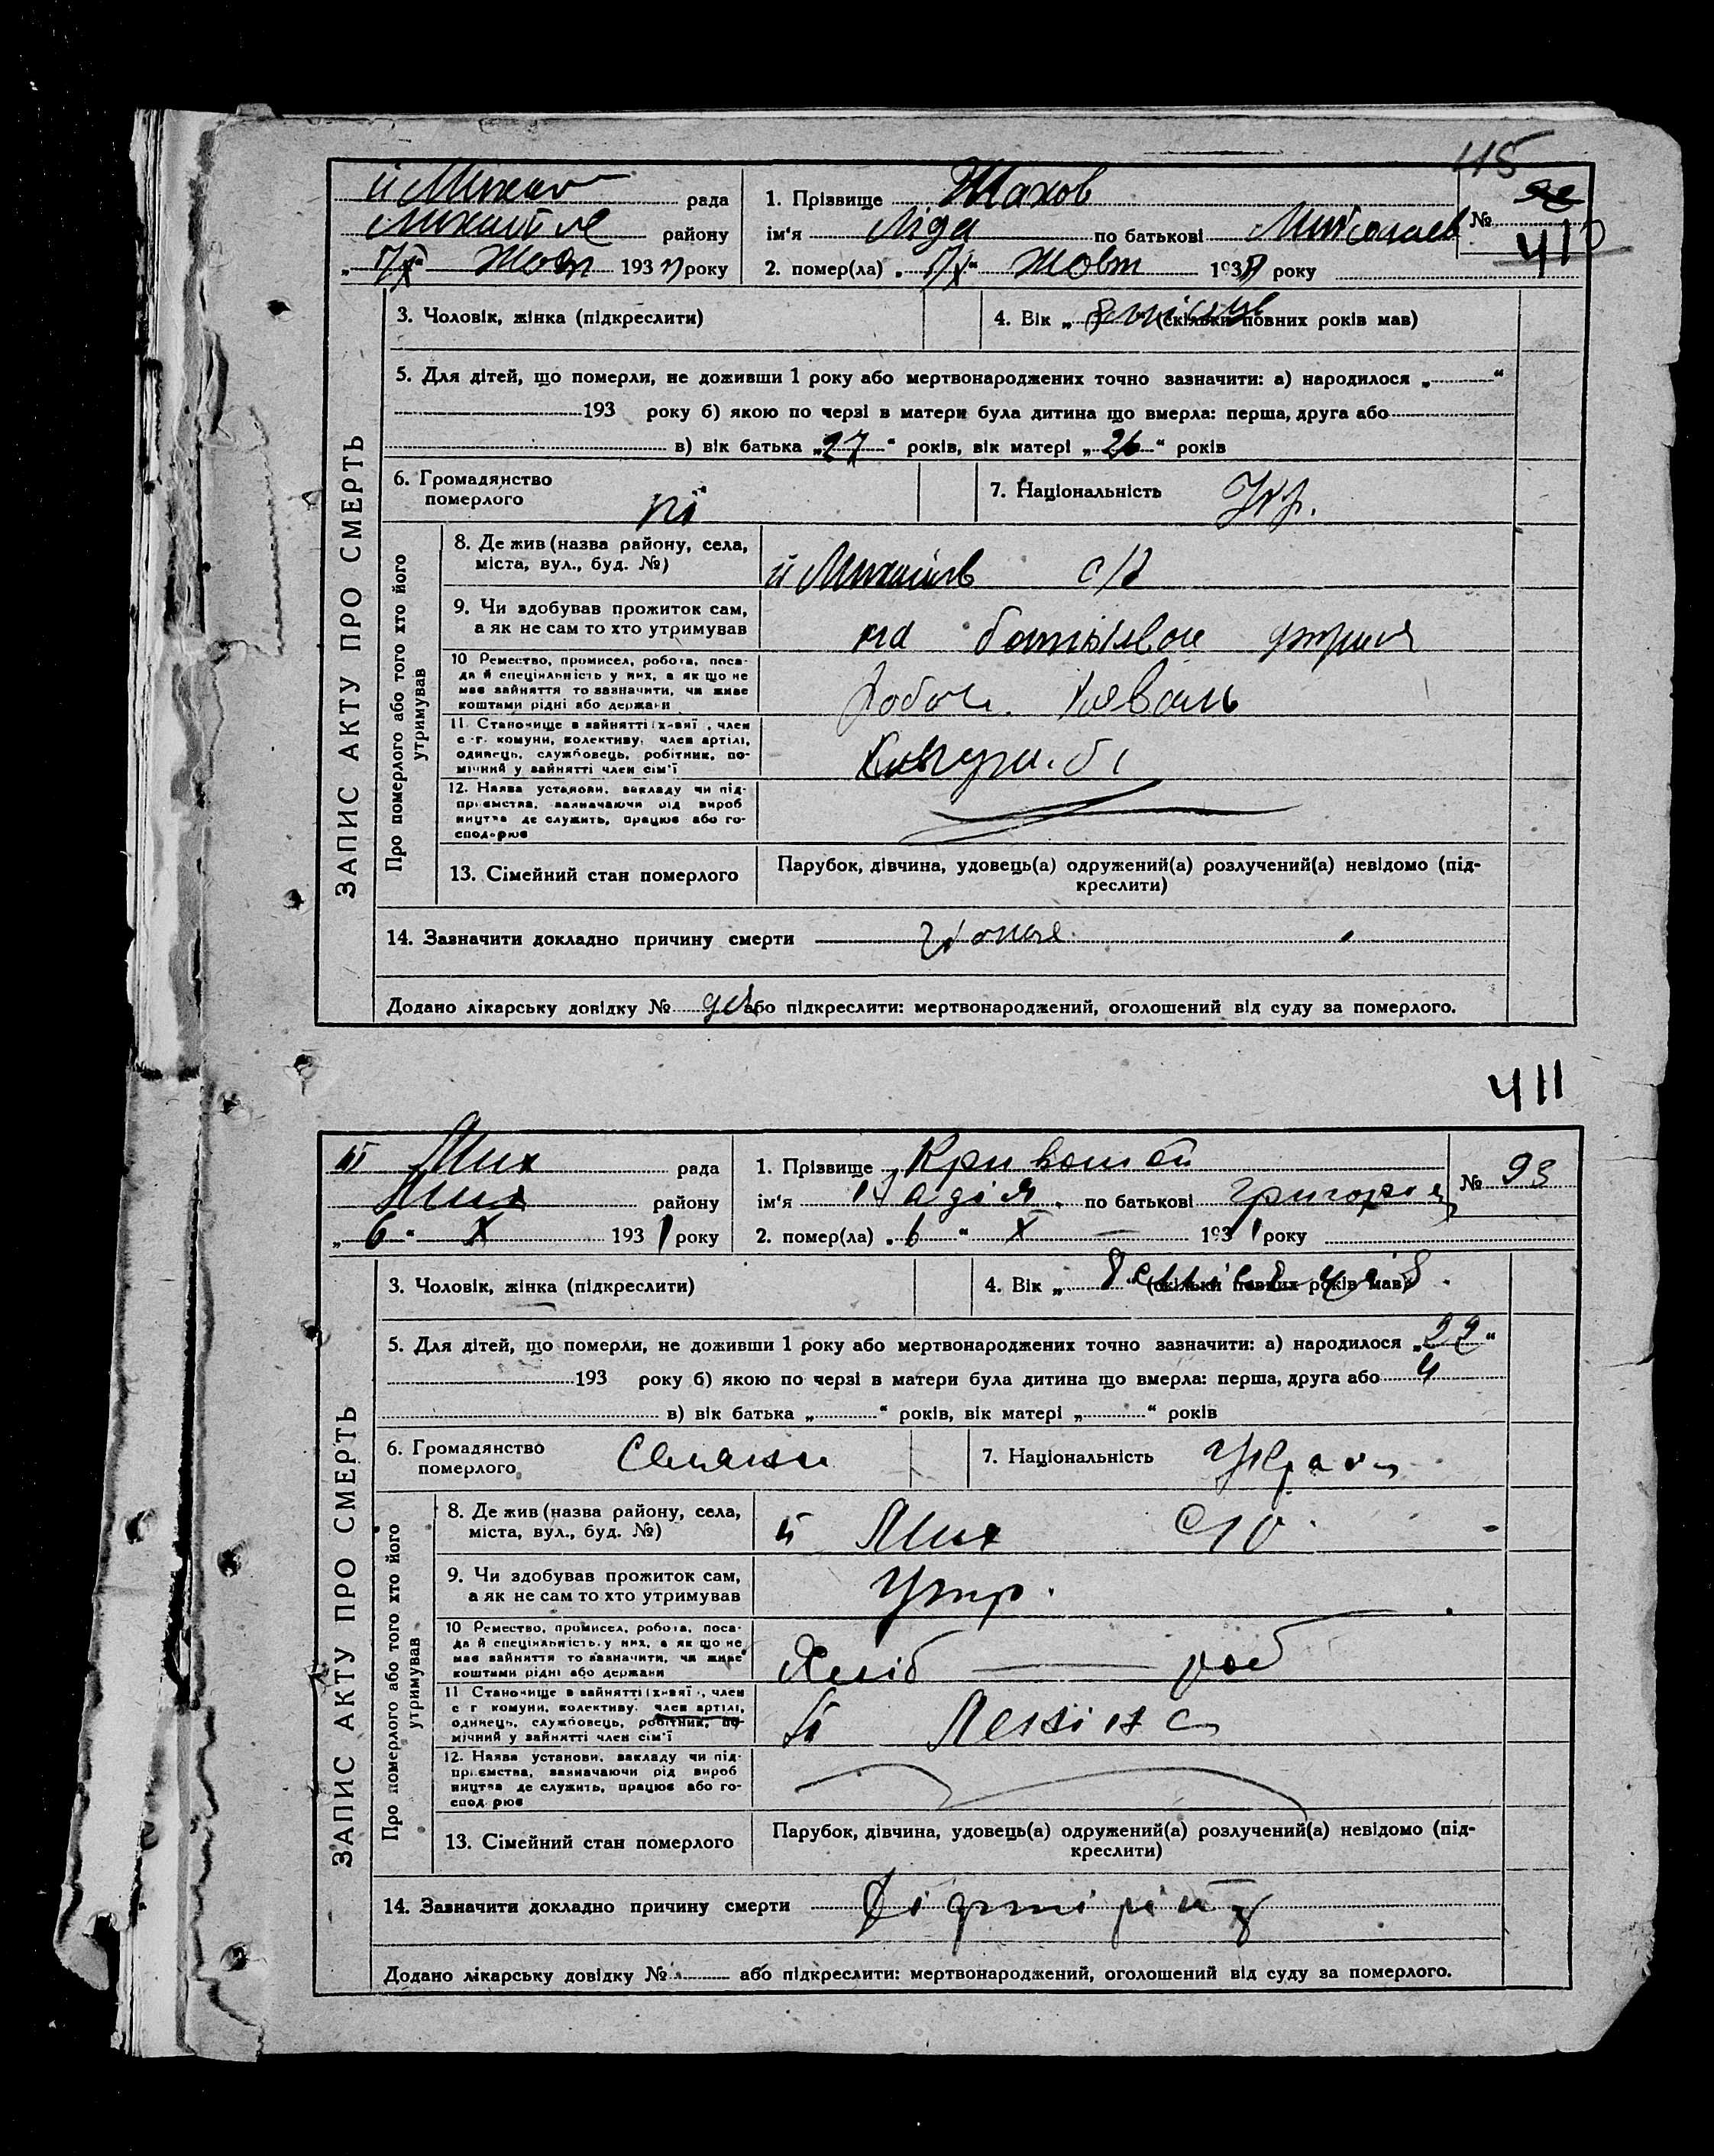 115
рада
1. Прізвище Жахов
№ 410
району
ім‘я Ліда по батькові Миколаев
Жовт 193 року
2. помер(ла) „ “ жовт 193 року
ЗАПИС АКТУ ПРО СМЕРТЬ
3. Чоловік, жінка (підкреслити)
4. Вік „ (скільки повних років мав)
5. Для дітей, що померли, не доживши 1 року або мертвонароджених точно зазначити: а) народилося „ “
193 року б) якою по черзі в матери була дитина що вмерла: перша, друга або
в) вік батька „27“ років, вік матері „26“ років
6. Громадянство
померлого
7. Національність Укр.
Про померлого або того хто його
утримував
8. Де жив (назва району, села,
міста, вул., буд. №)
с/р
9. Чи здобував прожиток сам,
а як не сам то хто утримував
на
10 Ремество, промисел, робота, поса-
да й спеціяльність у них, а як що не
має зайняття то зазначити, чи живе
коштами рідні або держави
Коваль
11. Становище в зайнятті (хазяї, член
с.-г. комуни, колективу, член артілі,
одинець, службовець, робітник, по-
мічний у зайнятті член сім‘ї
12. Назва установи, закладу чи під-
приємства, зазначаючи рід вироб
ництва де служить, працює або го-
сподарює
13. Сімейний стан померлого
Парубок, дівчина, удовець(а) одружений(а) розлучений(а) невідомо (під-
креслити)
14. Зазначити докладно причину смерти
Додано лікарську довідку № або підкреслити: мертвонароджений, оголошений від суду за померлого.
411
Мих рада
1. Прізвище Кривошей
№ 93
Мих району
ім‘я Надія по батькові Григорів
„6“ X 1931 року
2. помер(ла) „6“ X 1931 року
ЗАПИС АКТУ ПРО СМЕРТЬ
3. Чоловік, жінка (підкреслити)
4. Вік „8 місяців (скільки повних років мав)
5. Для дітей, що померли, не доживши 1 року або мертвонароджених точно зазначити: а) народилося „ “
193 року б) якою по черзі в матери була дитина що вмерла: перша, друга або 4
в) вік батька „ “ років, вік матері „ “ років
6. Громадянство
померлого
7. Національність
Про померлого або того хто його
утримував
8. Де жив (назва району, села,
міста, вул., буд. №)
Мих
9. Чи здобував прожиток сам,
а як не сам то хто утримував
Утр.
10 Ремество, промисел, робота, поса-
да й спеціяльність у них, а як що не
має зайняття то зазначити, чи живе
коштами рідні або держави
Хліб роб
11 Становище в зайнятті (хазяї, член
с г комуни, колективу, член артілі,
одинець, службовець, робітник, по-
мічний у зайнятті член сім‘ї
12. Назва установи, закладу чи під-
приємства, зазначаючи рід вироб
ництва де служить, працює або го-
сподарює
13. Сімейний стан померлого
Парубок, дівчина, удовець(а) одружений(а) розлучений(а) невідомо (під-
креслити)
14. Зазначити докладно причину смерти
Додано лікарську довідку № або підкреслити: мертвонароджений, оголошений від суду за померлого.